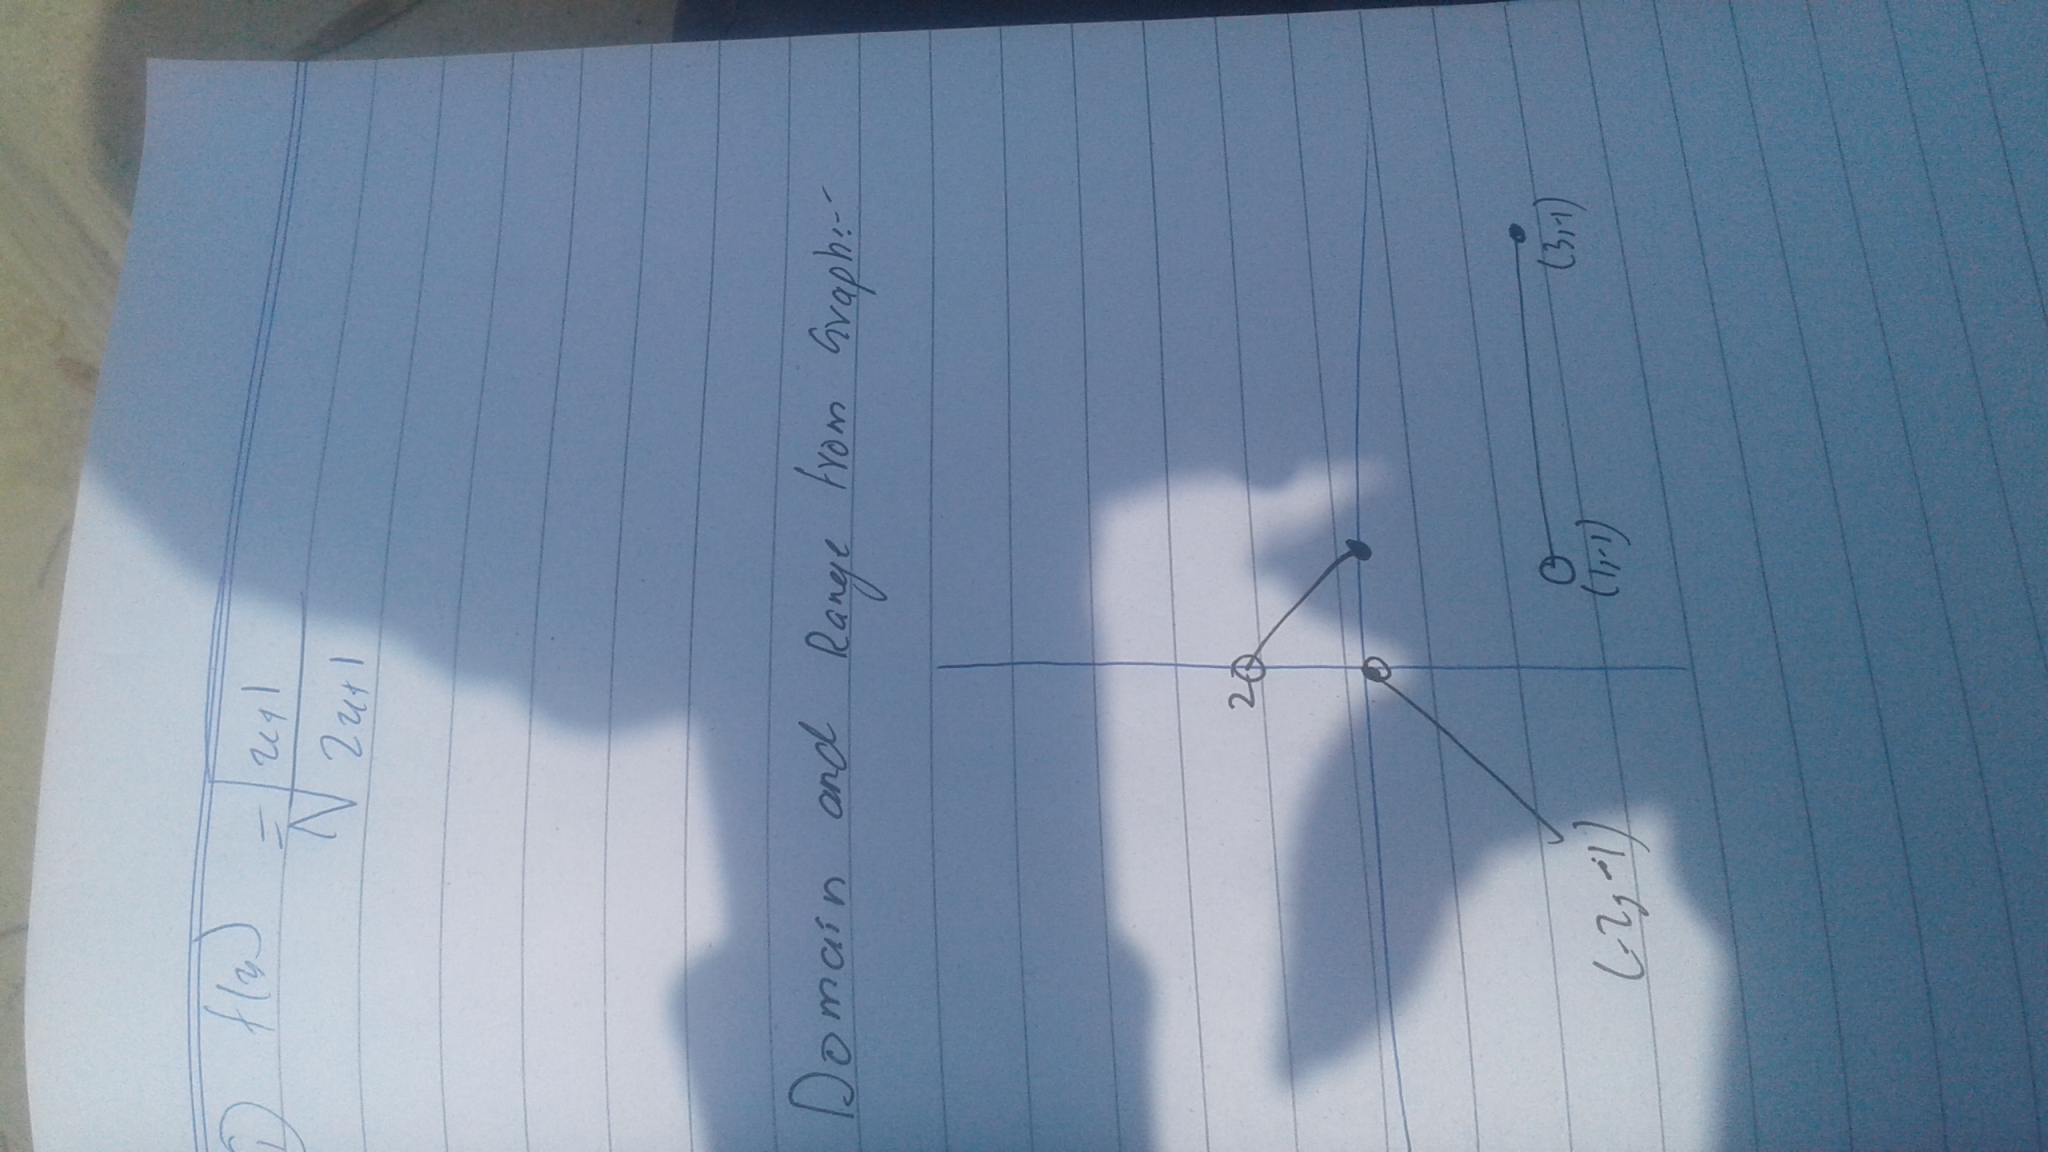 ① f(x) = √
x+1
2x+1
Domain and Range from Graph:-
2
(3,-1)
(1,-1)
(-2,-1)